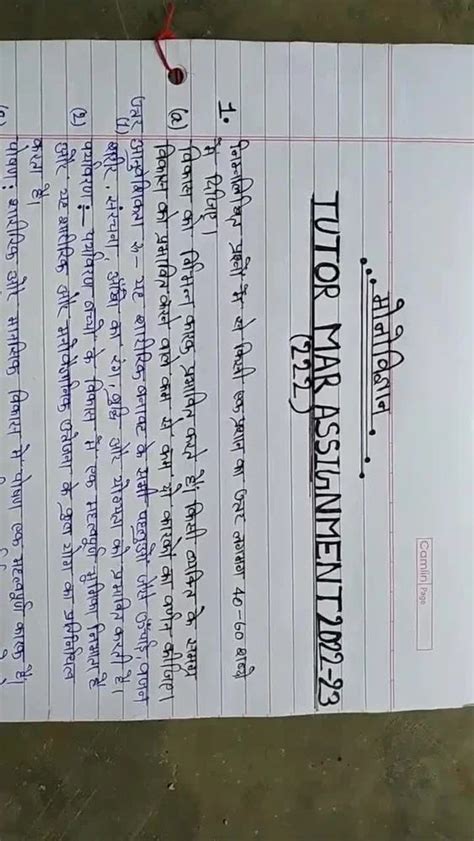 Camlin Page
मोनोविज्ञान
TUTOR MAR ASSIGNMENT 2022-23
(222)
1. निम्नलिखित प्रश्नो मे से किसी एक प्रश्न का उत्तर लगभग 40-60 शब्दो
मे दिजिए।
(a) विकास को विभिन्न कारक प्रभावित करते हैं। किसी व्यक्ति के समग्र
विकास को प्रभावित करने वाले कम से कम दो कारकों का वर्णन कीजिए।
उत्तर आनुवंशिकता :- यह शारीरिक बनावट के सभी पहलुओं जैसे ऊंचाई, वजन
(1) शरीर संरचना आँख का रंग, बुद्धि और योग्यता को प्रभावित करती है।
(2) पर्यावरण :- पर्यावरण बच्चो के विकास मे एक महत्वपूर्ण भूमिका निभाता है
और यह शारीरिक और मनोवैज्ञानिक उत्तेजना के कुल योग का प्रतिनिधित्व
करता है।
पोषण: शारीरिक और मानसिक विकास मे पोषण एक महत्वपूर्ण कारक है।